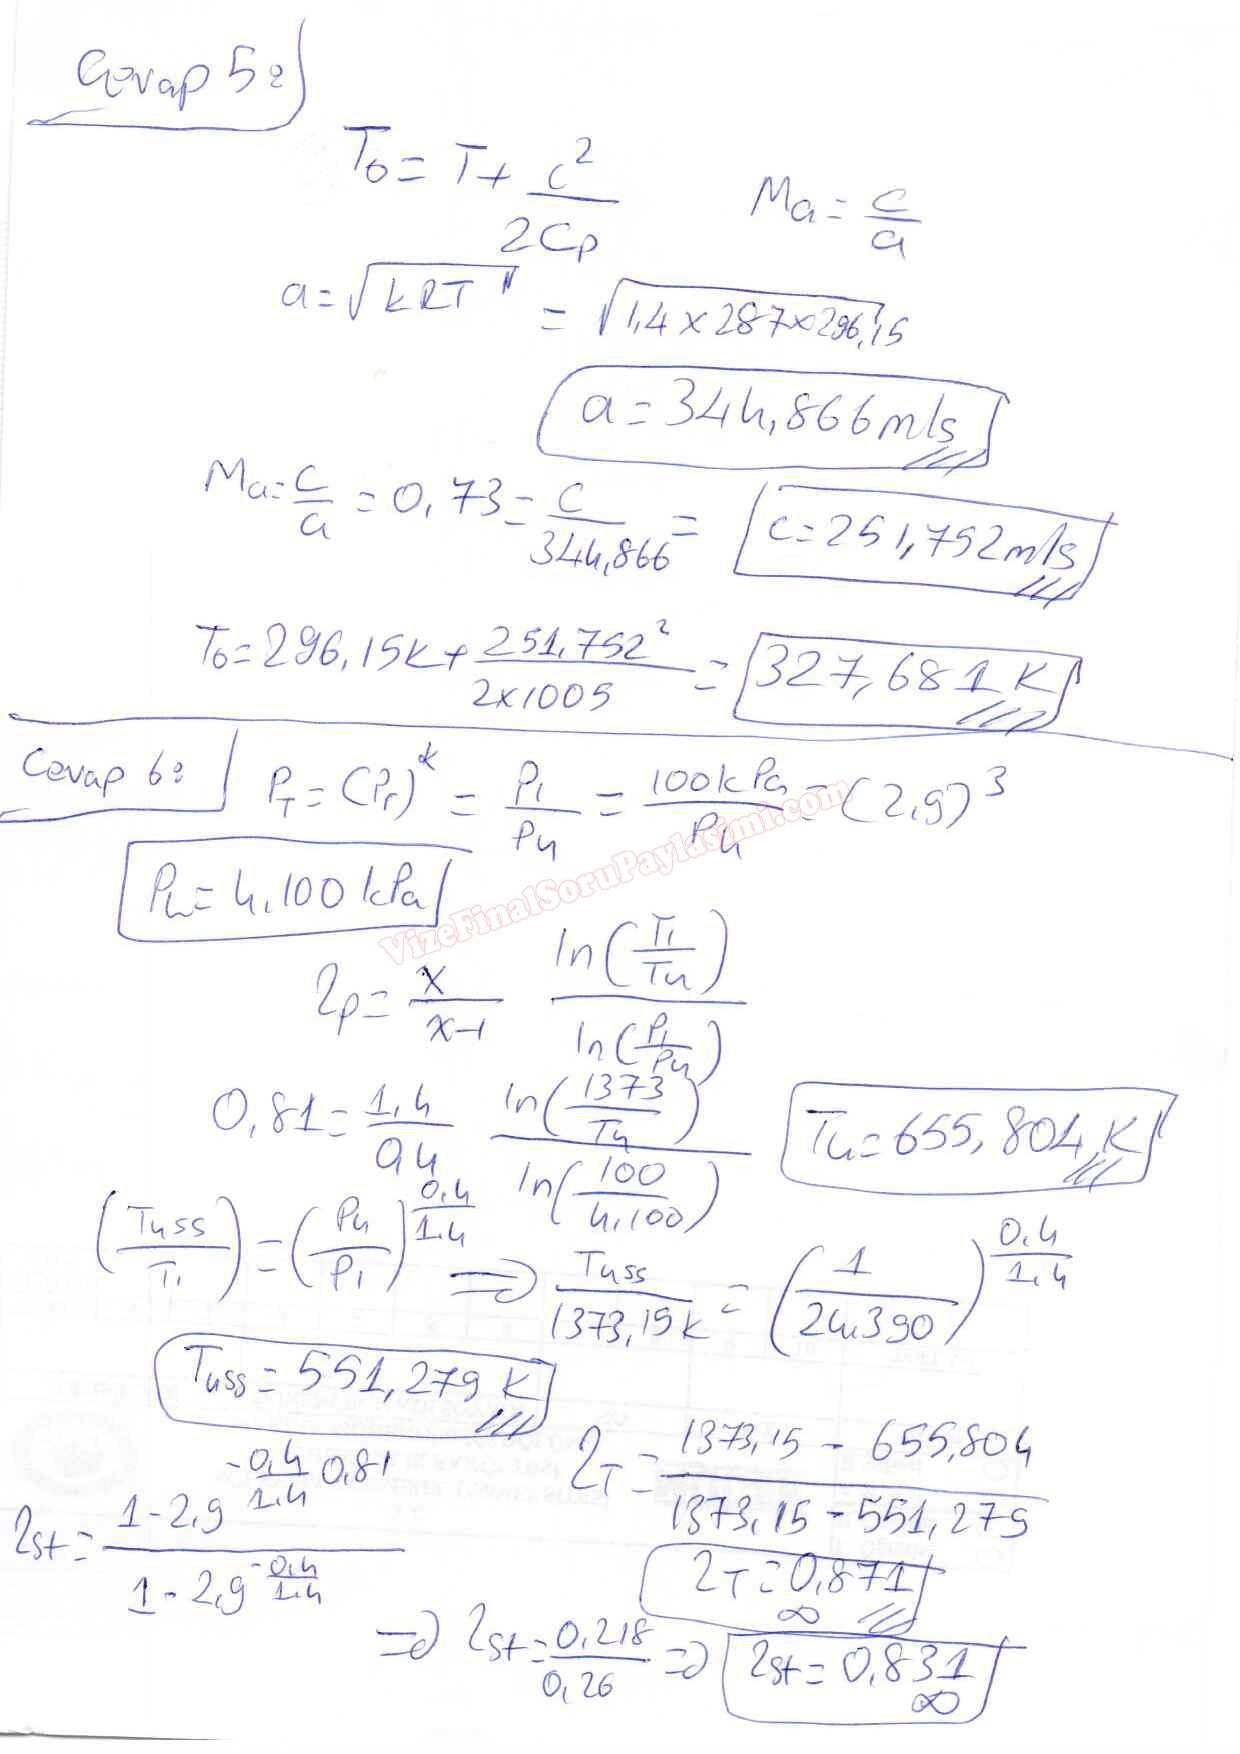 Cevap 5:
T₀ = T + c² / 2Cp    Ma = c / a
a = √kRT = √1,4 x 287 x 296,15
a = 344,866 m/s
Ma = c / a = 0,73 = c / 344,866 = c = 251,752 m/s
T₀ = 296,15 K + 251,752² / 2 x 1005 = 327,681 K
Cevap 6:
P_T = (Pr)^k = P₁ / P₄ = 100 kPa / P₄ = (2,9)³
P₄ = 4,100 kPa
VizeFinalSoruPaylasimi.com
ηp = x / x-1 ln(T₁ / T₄) / ln(P₁ / P₄)
0,81 = 1,4 / 0,4 ln(1373 / T₄) / ln(100 / 4,100)    T₄ = 655,804 K
(T₄ss / T₁) = (P₄ / P₁)^(0,4 / 1,4) ⇒ T₄ss / 1373,15 K = (1 / 24,390)^(0,4 / 1,4)
T₄ss = 551,279 K
η_T = 1373,15 - 655,804 / 1373,15 - 551,279
η_T = 0,871
ηst = 1 - 2,9^(-0,4 / 1,4 0,81) / 1 - 2,9^(-0,4 / 1,4)
⇒ ηst = 0,218 / 0,26 ⇒ ηst = 0,831